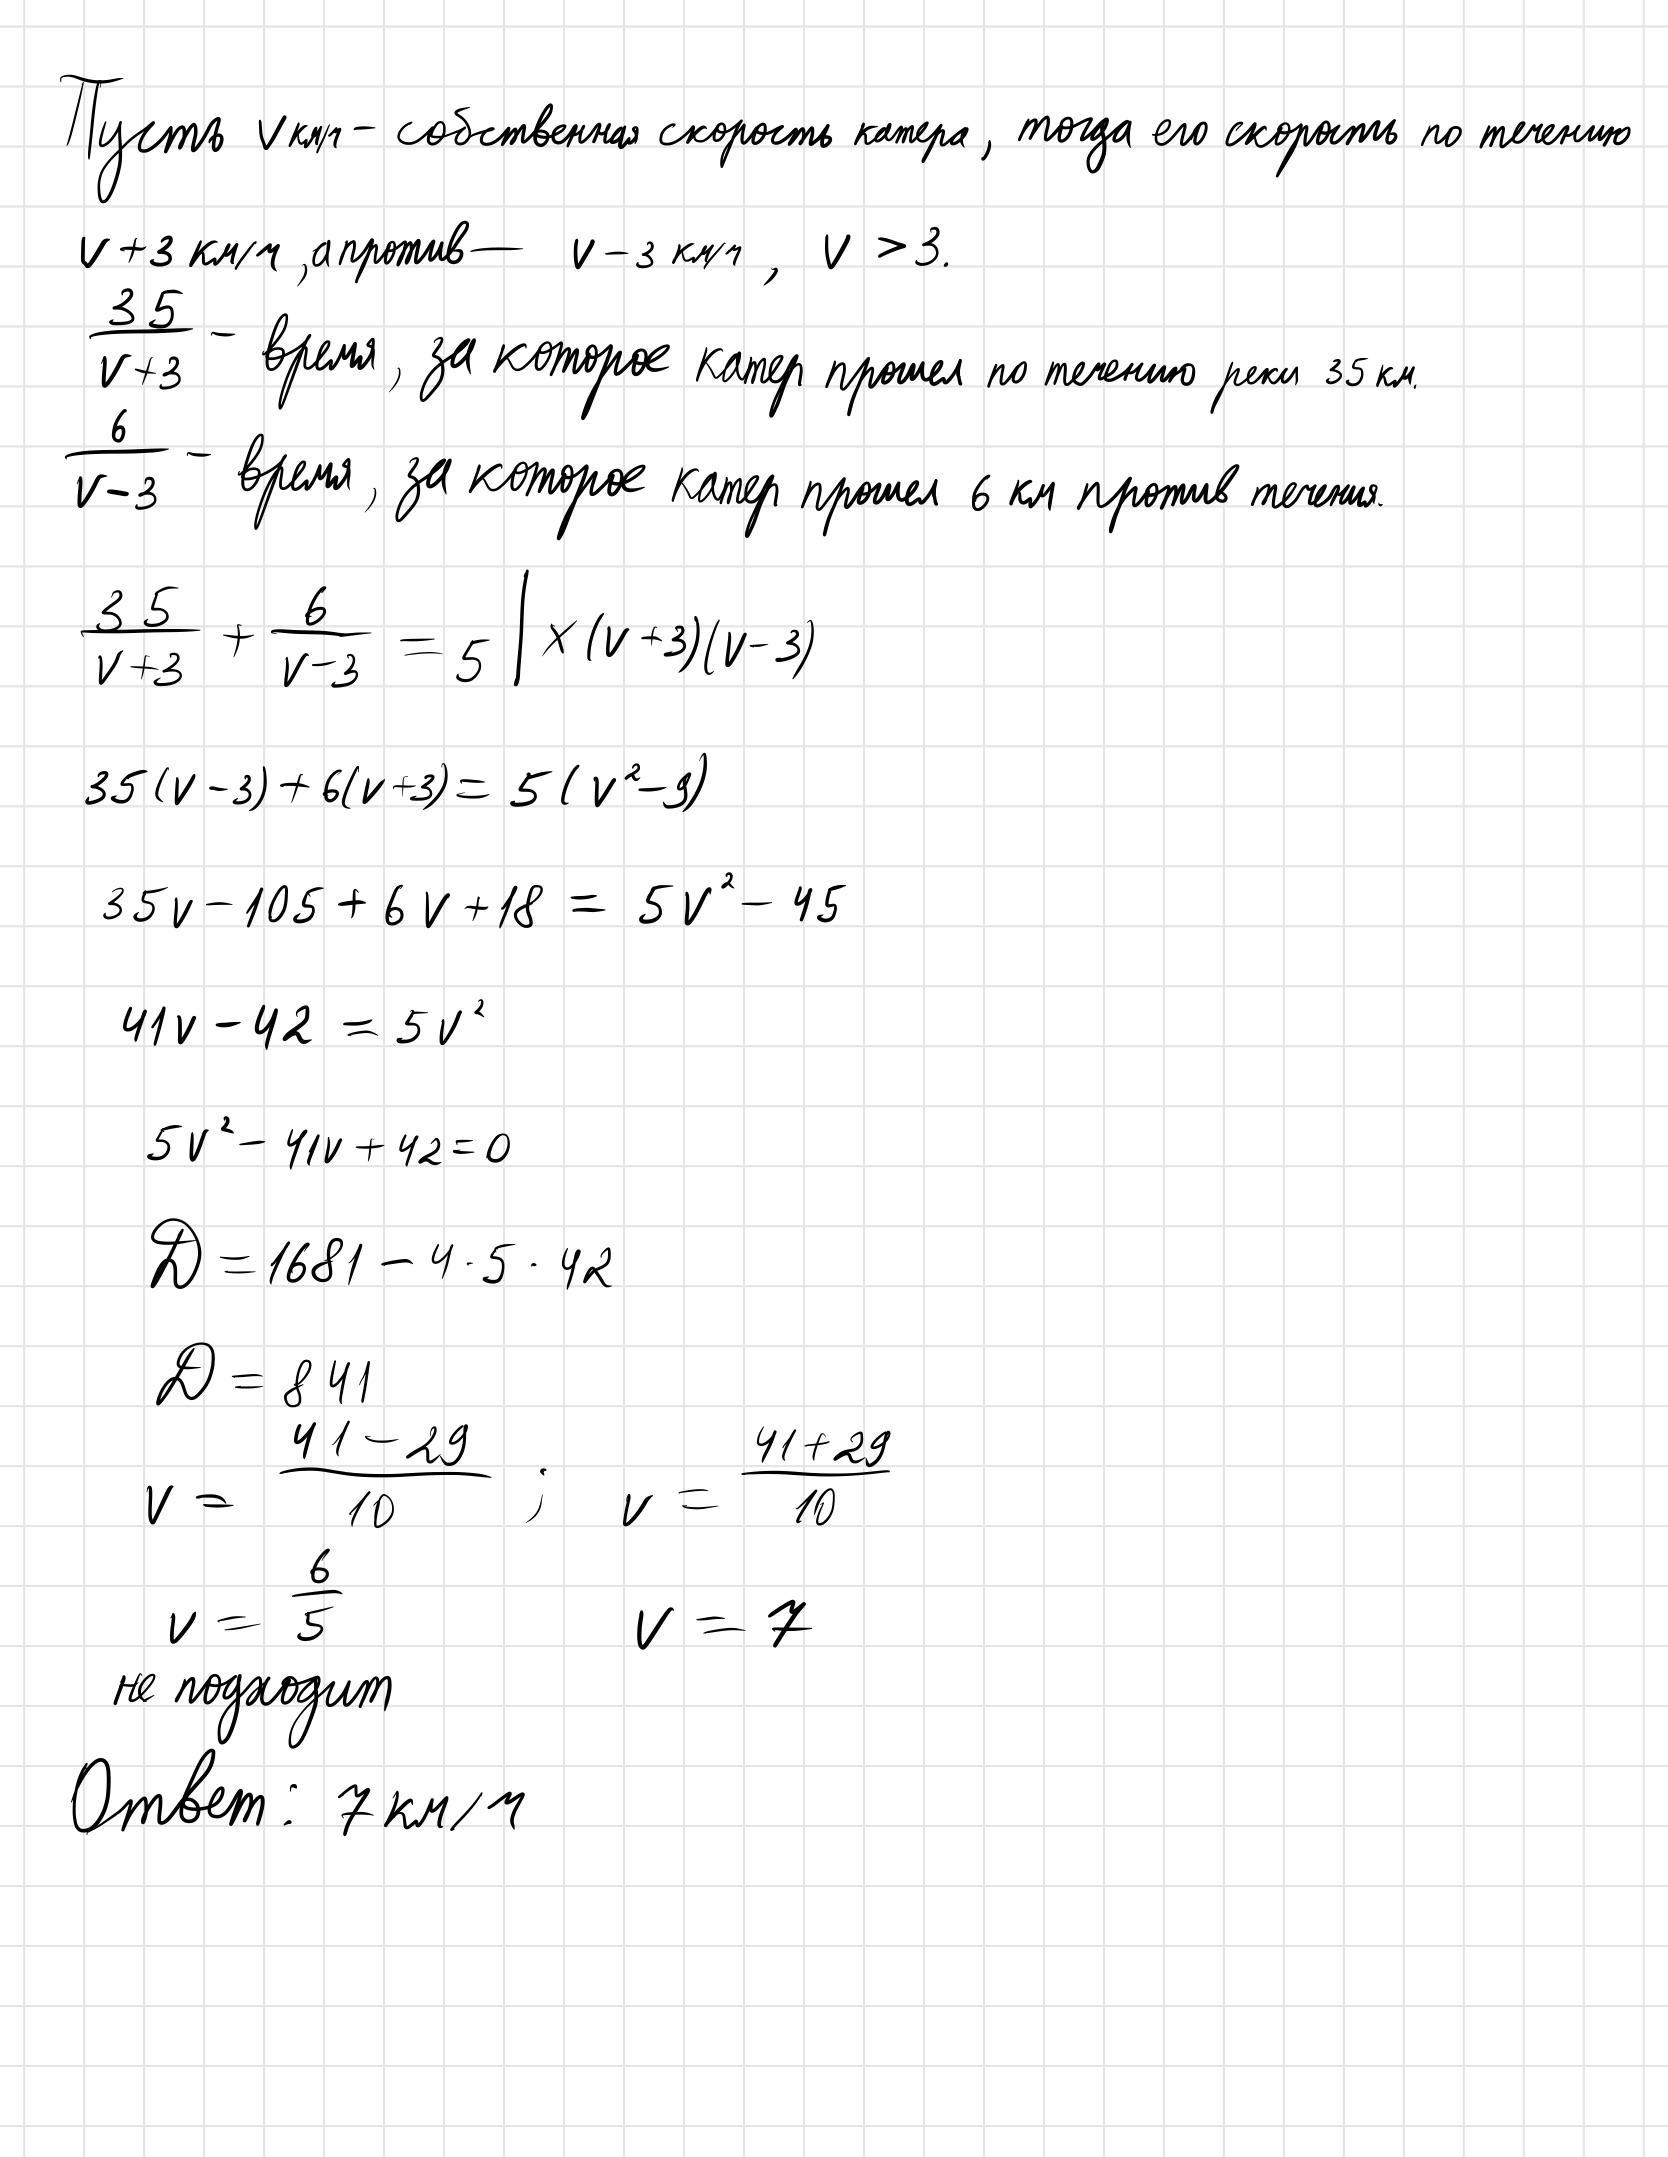 Пусть v км/ч – собственная скорость катера, тогда его скорость по течению
v + 3 км/ч, а против — v – 3 км/ч, v > 3.
35/(v+3) – время, за которое катер прошел по течению реки 35 км.
6/(v–3) – время, за которое катер прошел 6 км против течения.
35/(v+3) + 6/(v–3) = 5 | × (v+3)(v–3)
35(v–3) + 6(v+3) = 5(v²–9)
35v – 105 + 6v + 18 = 5v² – 45
41v – 42 = 5v²
5v² – 41v + 42 = 0
D = 1681 – 4 · 5 · 42
D = 841
v = (41 – 29)/10 ; v = (41 + 29)/10
v = 6/5 v = 7
не подходит
Ответ: 7 км/ч